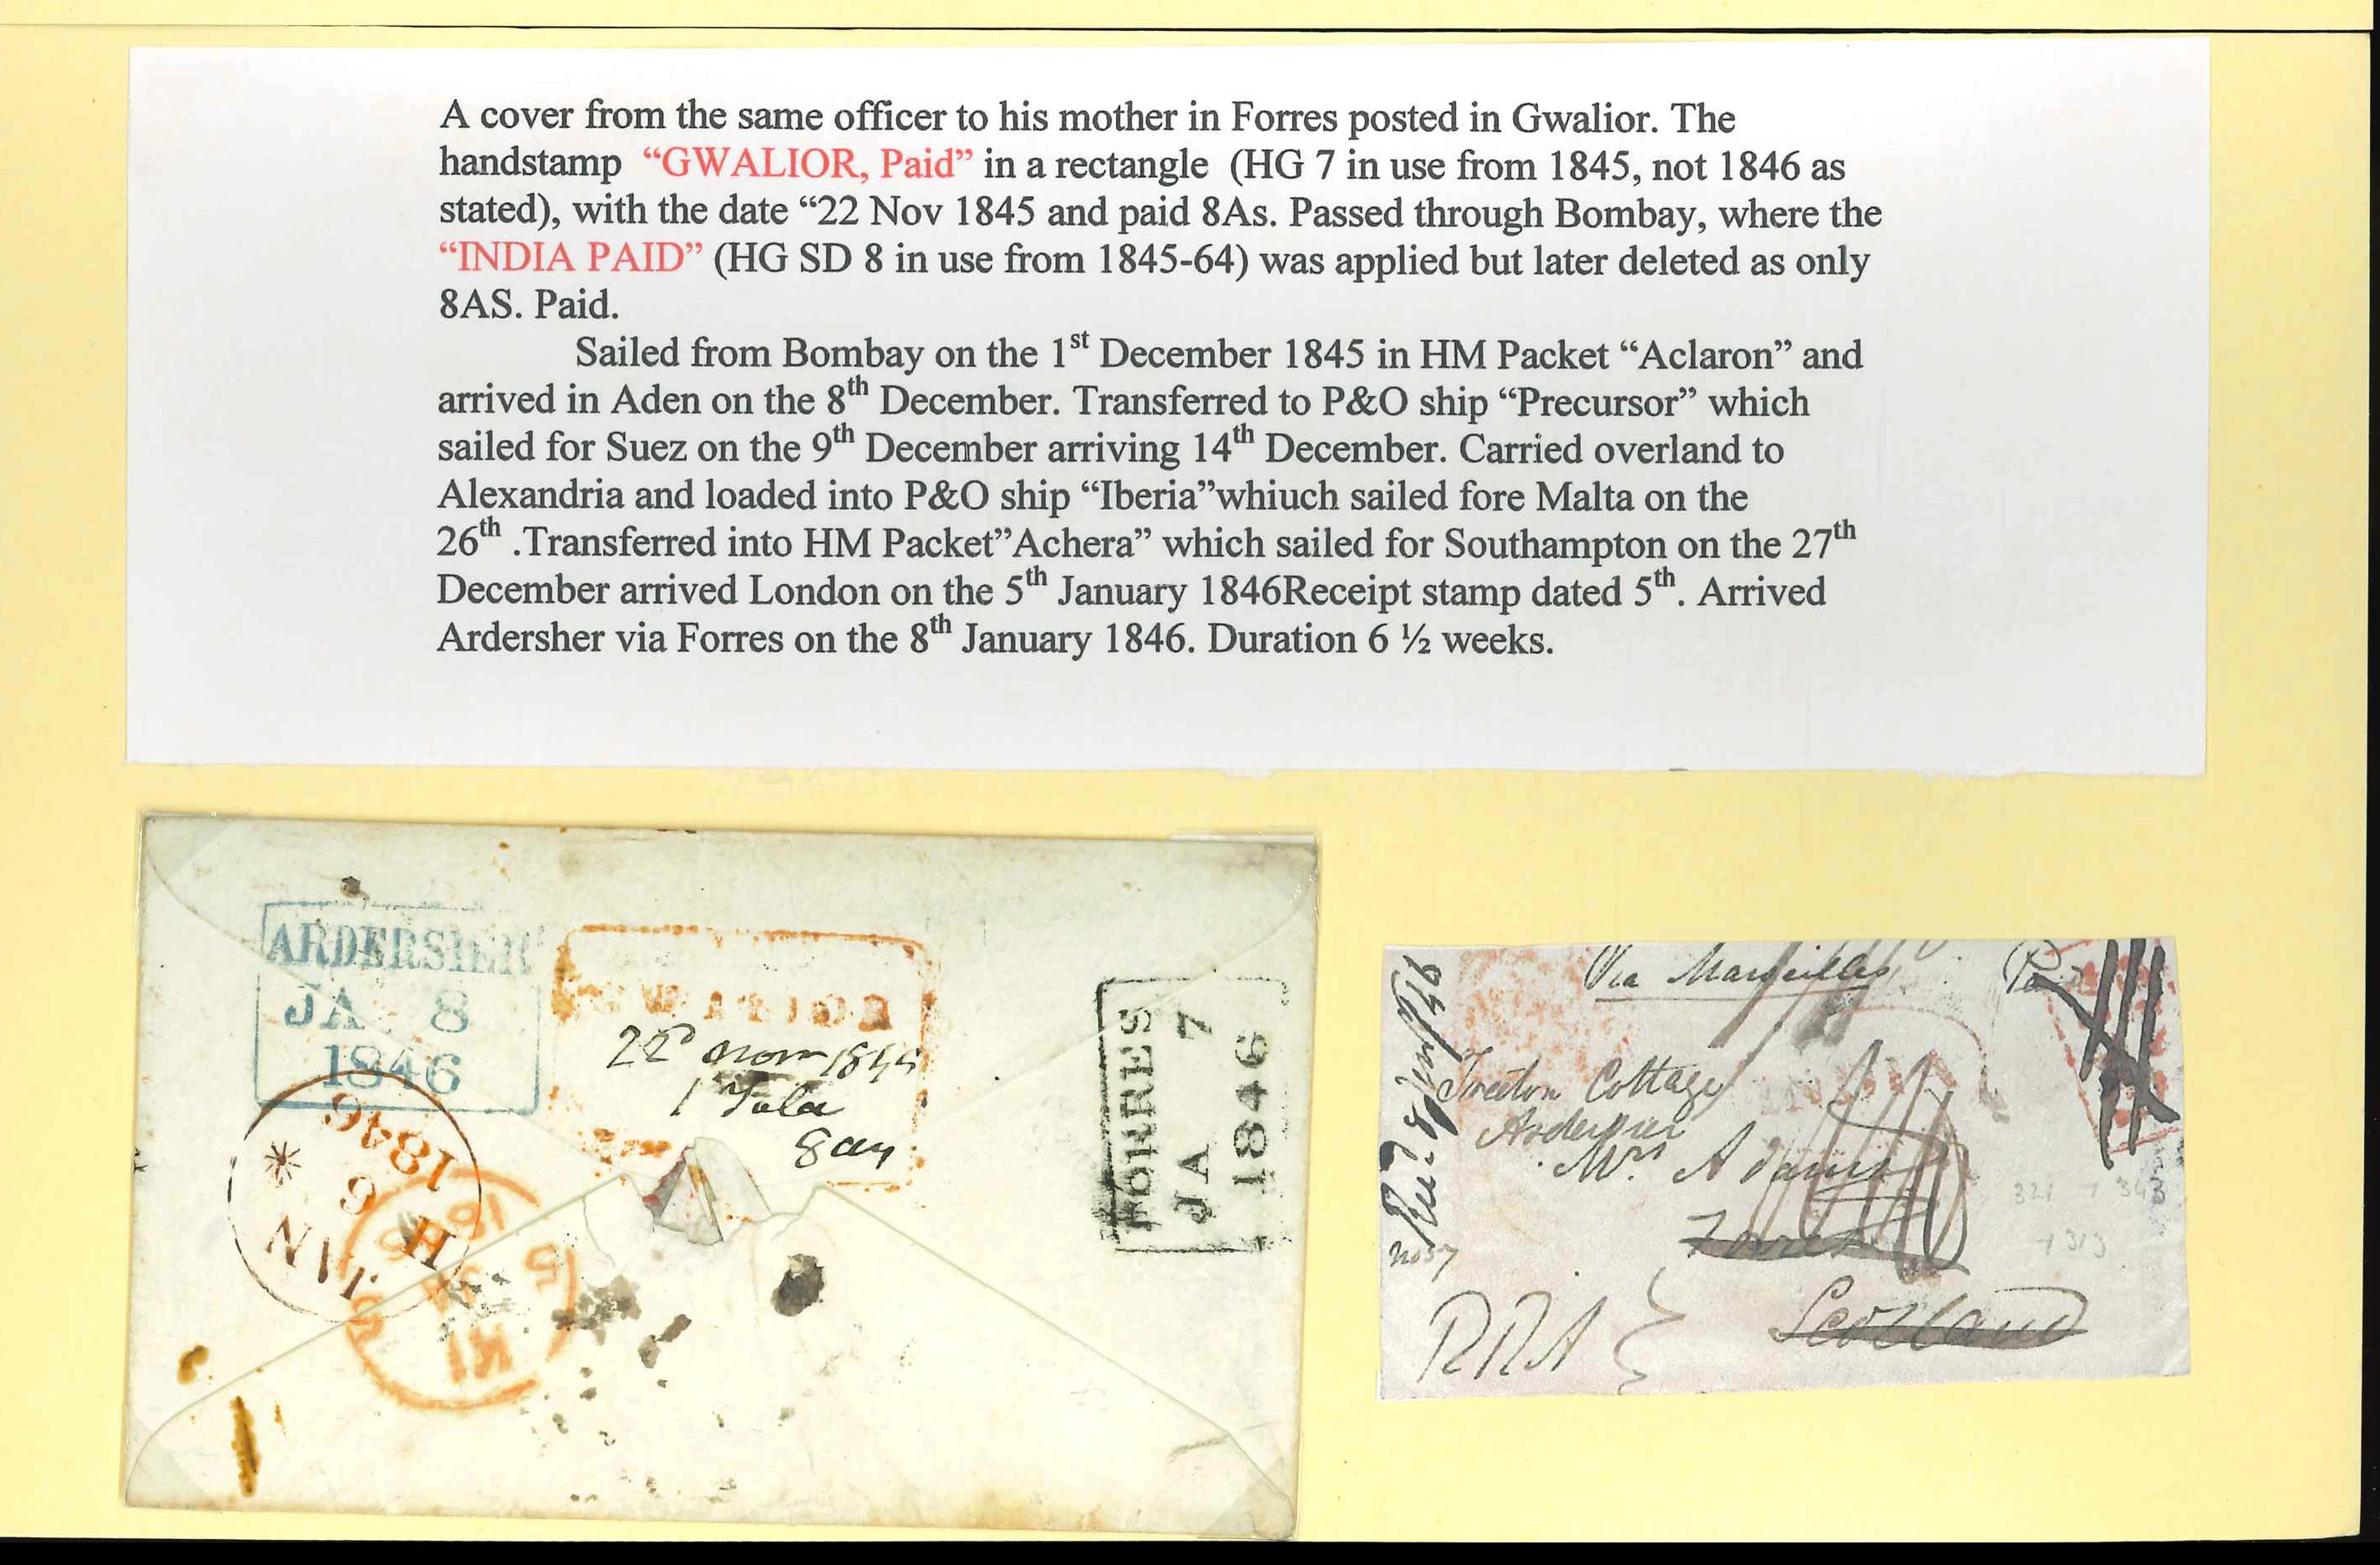 A cover from the same officer to his mother in Forres posted in Gwalior. The
handstamp “GWALIOR, Paid” in a rectangle (HG 7 in use from 1845, not 1846 as
stated), with the date “22 Nov 1845 and paid 8As. Passed through Bombay, where the
“INDIA PAID” (HG SD 8 in use from 1845-64) was applied but later deleted as only
8AS. Paid.
Sailed from Bombay on the 1st December 1845 in HM Packet “Aclaron” and
arrived in Aden on the 8th December. Transferred to P&O ship “Precursor” which
sailed for Suez on the 9th December arriving 14th December. Carried overland to
Alexandria and loaded into P&O ship “Iberia”whiuch sailed fore Malta on the
26th .Transferred into HM Packet”Achera” which sailed for Southampton on the 27th
December arrived London on the 5th January 1846Receipt stamp dated 5th. Arrived
Ardersher via Forres on the 8th January 1846. Duration 6 ½ weeks.
ARDERSIER
JA 8
1846
GWALIOR
22d Novr 1845
1 Tola
8 as
FORRES
JA 7
1846
H
JAN
6
1846
Via Marseilles
Paid
Cottage
Mrs Adams
Forres
Scotland
No 57
321
343
313